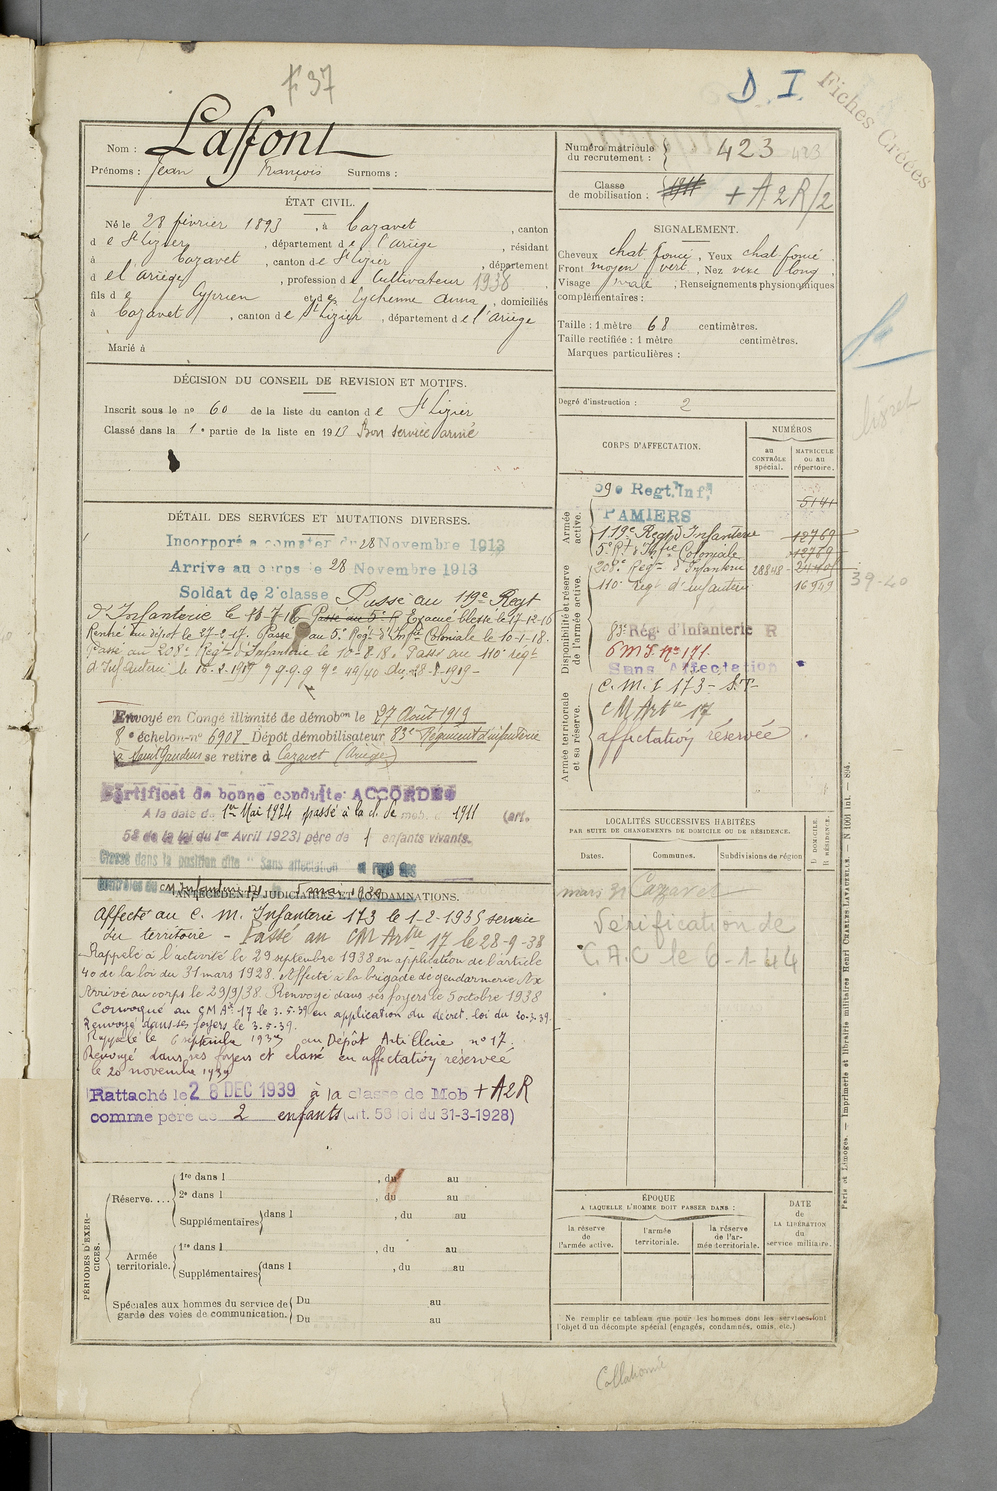 F 37
D. I.
Fiches Créées
Nom : Laffont
Prénoms : Jean François Surnoms :
Numéro matricule du recrutement : 423 423
Classe de mobilisation : 1911 + A2R/2
ÉTAT CIVIL.
Né le 28 février 1893, à Cazavet, canton
d e St Lizier, département d e l'Ariège, résidant
à Cazavet, canton d e St Lizier, département
d e l'Ariège, profession d e Cultivateur 1938
fils d e Cyprien et d e Eychenne Anna, domiciliés
à Cazavet, canton d e St Lizier, département d e l'Ariège
Marié à
SIGNALEMENT.
Cheveux chat foncé, Yeux chat foncé
Front moyen vert., Nez vexe long,
Visage ovale ; Renseignements physionomiques
complémentaires :
Taille : 1 mètre 68 centimètres.
Taille rectifiée : 1 mètre centimètres.
Marques particulières :
Degré d'instruction : 2
DÉCISION DU CONSEIL DE REVISION ET MOTIFS.
Inscrit sous le no 60 de la liste du canton d e St Lizier
Classé dans la 1e partie de la liste en 1913 Bon service armé
DÉTAIL DES SERVICES ET MUTATIONS DIVERSES.
Incorporé à compter du 28 Novembre 1913
Arrivé au corps le 28 Novembre 1913
Soldat de 2e classe Passé au 119e Regt
d'Infanterie le 16-7-16 Passé au 5e R Evacué blessé le 17-12-16
Rentré au dépôt le 27-2-17. Passé au 5e Régt d'Infie Coloniale le 10-1-18.
Passé au 208e Régt d'Infanterie le 10-8-18. Passé au 110e régt
d'Infanterie le 16-2-1919
Envoyé en Congé illimité de démobon le 27 Août 1919
8e échelon no 6908 Dépôt démobilisateur 83e Régiment d'infanterie
à Saint Gaudens se retire à Cazavet (Ariège)
Certificat de bonne conduite ACCORDÉ
A la date du 1er Mai 1924 passé à la cl. de mob. de 1911 (art.
58 de la loi du 1er Avril 1923) père de 1 enfants vivants.
Classé dans la position dite "Sans affectation" et rayé des
contrôles du CM Infanterie 171 le 5 mai 1930
ANTÉCÉDENTS JUDICIAIRES ET CONDAMNATIONS.
Affecté au C. M. Infanterie 173 le 1-2-1935 service
du territoire - Passé au CM Artie 17 le 28-9-38
Rappelé à l'activité le 29 septembre 1938 en application de l'article
40 de la loi du 31 mars 1928. Affecté à la brigade de gendarmerie Ax
Arrivé au corps le 29/9/38. Renvoyé dans ses foyers le 5 octobre 1938
Convoqué au CM Aie 17 le 3.5.39 en application du décret loi du 20.3.39.
Renvoyé dans ses foyers le 3.5.39.
Rappelé le 6 septembre 1939 au Dépôt Artillerie no 17.
Renvoyé dans ses foyers et classé en affectation réservée
le 20 novembre 1939
Rattaché le 28 DEC 1939 à la classe de Mob + A2R
comme père de 2 enfants (art. 58 loi du 31-3-1928)
CORPS D'AFFECTATION.
NUMÉROS
AU CONTRÔLE spécial.
MATRICULE ou au répertoire.
Armée active.
59e Regt. Inf. 5141
PAMIERS
119e Régt d'Infanterie 12769
5e Rt d'Infie Coloniale 12769
Disponibilité et réserve de l'armée active.
208e Régt d'Infanterie 28848
110e régt d'infanterie 16949
39-40
83e Rég. d'Infanterie R
CMI No 171
Sans Affectation
Armée territoriale et sa réserve.
C. M. I 173 - S.T-
CM Artie 17
affectation réservée
LOCALITÉS SUCCESSIVES HABITÉES
PAR SUITE DE CHANGEMENTS DE DOMICILE OU DE RÉSIDENCE.
Dates. Communes. Subdivisions de région
D DOMICILE. R RÉSIDENCE.
mars 31 Cazavet
Vérification de
C.A.C le 6-1-44
PÉRIODES D'EXERCICES.
Réserve.... 1re dans l , du au
2e dans l , du au
Supplémentaires dans l , du au
Armée territoriale. 1re dans l , du au
Supplémentaires dans l , du au
Spéciales aux hommes du service de garde des voies de communication. Du au
Du au
ÉPOQUE
A LAQUELLE L'HOMME DOIT PASSER DANS :
la réserve de l'armée active.
l'armée territoriale.
la réserve de l'armée territoriale.
DATE de LA LIBÉRATION du service militaire.
Ne remplir ce tableau que pour les hommes dont les services font
l'objet d'un décompte spécial (engagés, condamnés, omis, etc.)
Paris et Limoges. — Imprimerie et librairie militaires Henri CHARLES-LAVAUZELLE. — N 1001 int. — 894.
Collationné